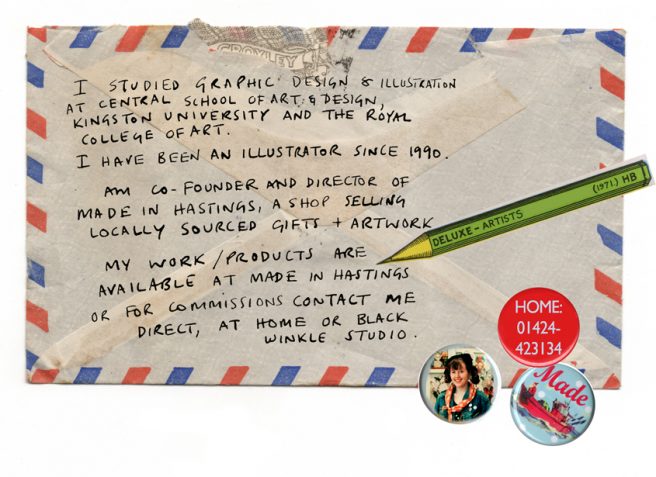 CROXLEY
I STUDIED GRAPHIC DESIGN & ILLUSTRATION
AT CENTRAL SCHOOL OF ART & DESIGN,
KINGSTON UNIVERSITY AND THE ROYAL
COLLEGE OF ART.
I HAVE BEEN AN ILLUSTRATOR SINCE 1990.
AM CO-FOUNDER AND DIRECTOR OF
MADE IN HASTINGS, A SHOP SELLING
LOCALLY SOURCED GIFTS + ARTWORK
MY WORK/PRODUCTS ARE
AVAILABLE AT MADE IN HASTINGS
OR FOR COMMISSIONS CONTACT ME
DIRECT, AT HOME OR BLACK
WINKLE STUDIO.
DELUXE-ARTISTS (1971.) HB
HOME:
01424-
423134
Made